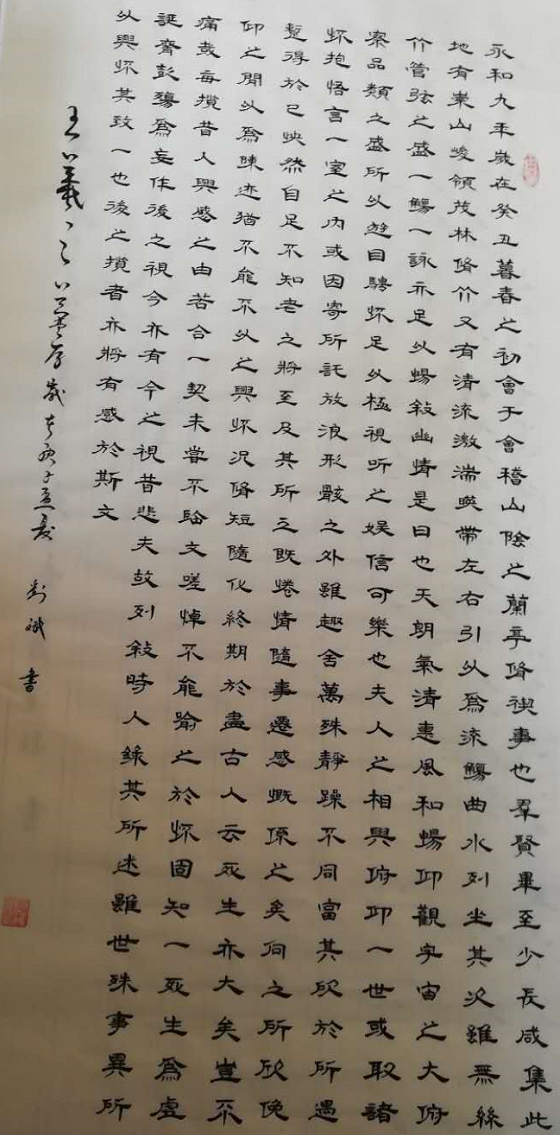 永和九年歲在癸丑暮春之初會于會稽山陰之蘭亭脩禊事也羣賢畢至少長咸集此
地有崇山峻領茂林脩竹又有清流激湍暎帶左右引以為流觴曲水列坐其次雖無絲
竹管弦之盛一觴一詠亦足以暢敍幽情是日也天朗氣清惠風和暢仰觀宇宙之大俯
察品類之盛所以遊目騁怀足以極視听之娱信可樂也夫人之相與俯仰一世或取諸
怀抱悟言一室之内或因寄所託放浪形骸之外雖趣舍萬殊靜躁不同當其欣於所遇
蹔得於己怏然自足不知老之將至及其所之既惓情隨事遷感慨係之矣向之所欣俛
仰之閒以為陳迹猶不能不以之興怀況脩短隨化終期於盡古人云死生亦大矣豈不
痛哉每攬昔人興感之由若合一契未嘗不臨文嗟悼不能喻之於怀固知一死生為虛
誕齊彭殤為妄作後之視今亦有今之視昔悲夫故列敍時人錄其所述雖世殊事異所
以興怀其致一也後之攬者亦將有感於斯文
王羲之蘭亭序歲在庚子孟夏 劉斌書